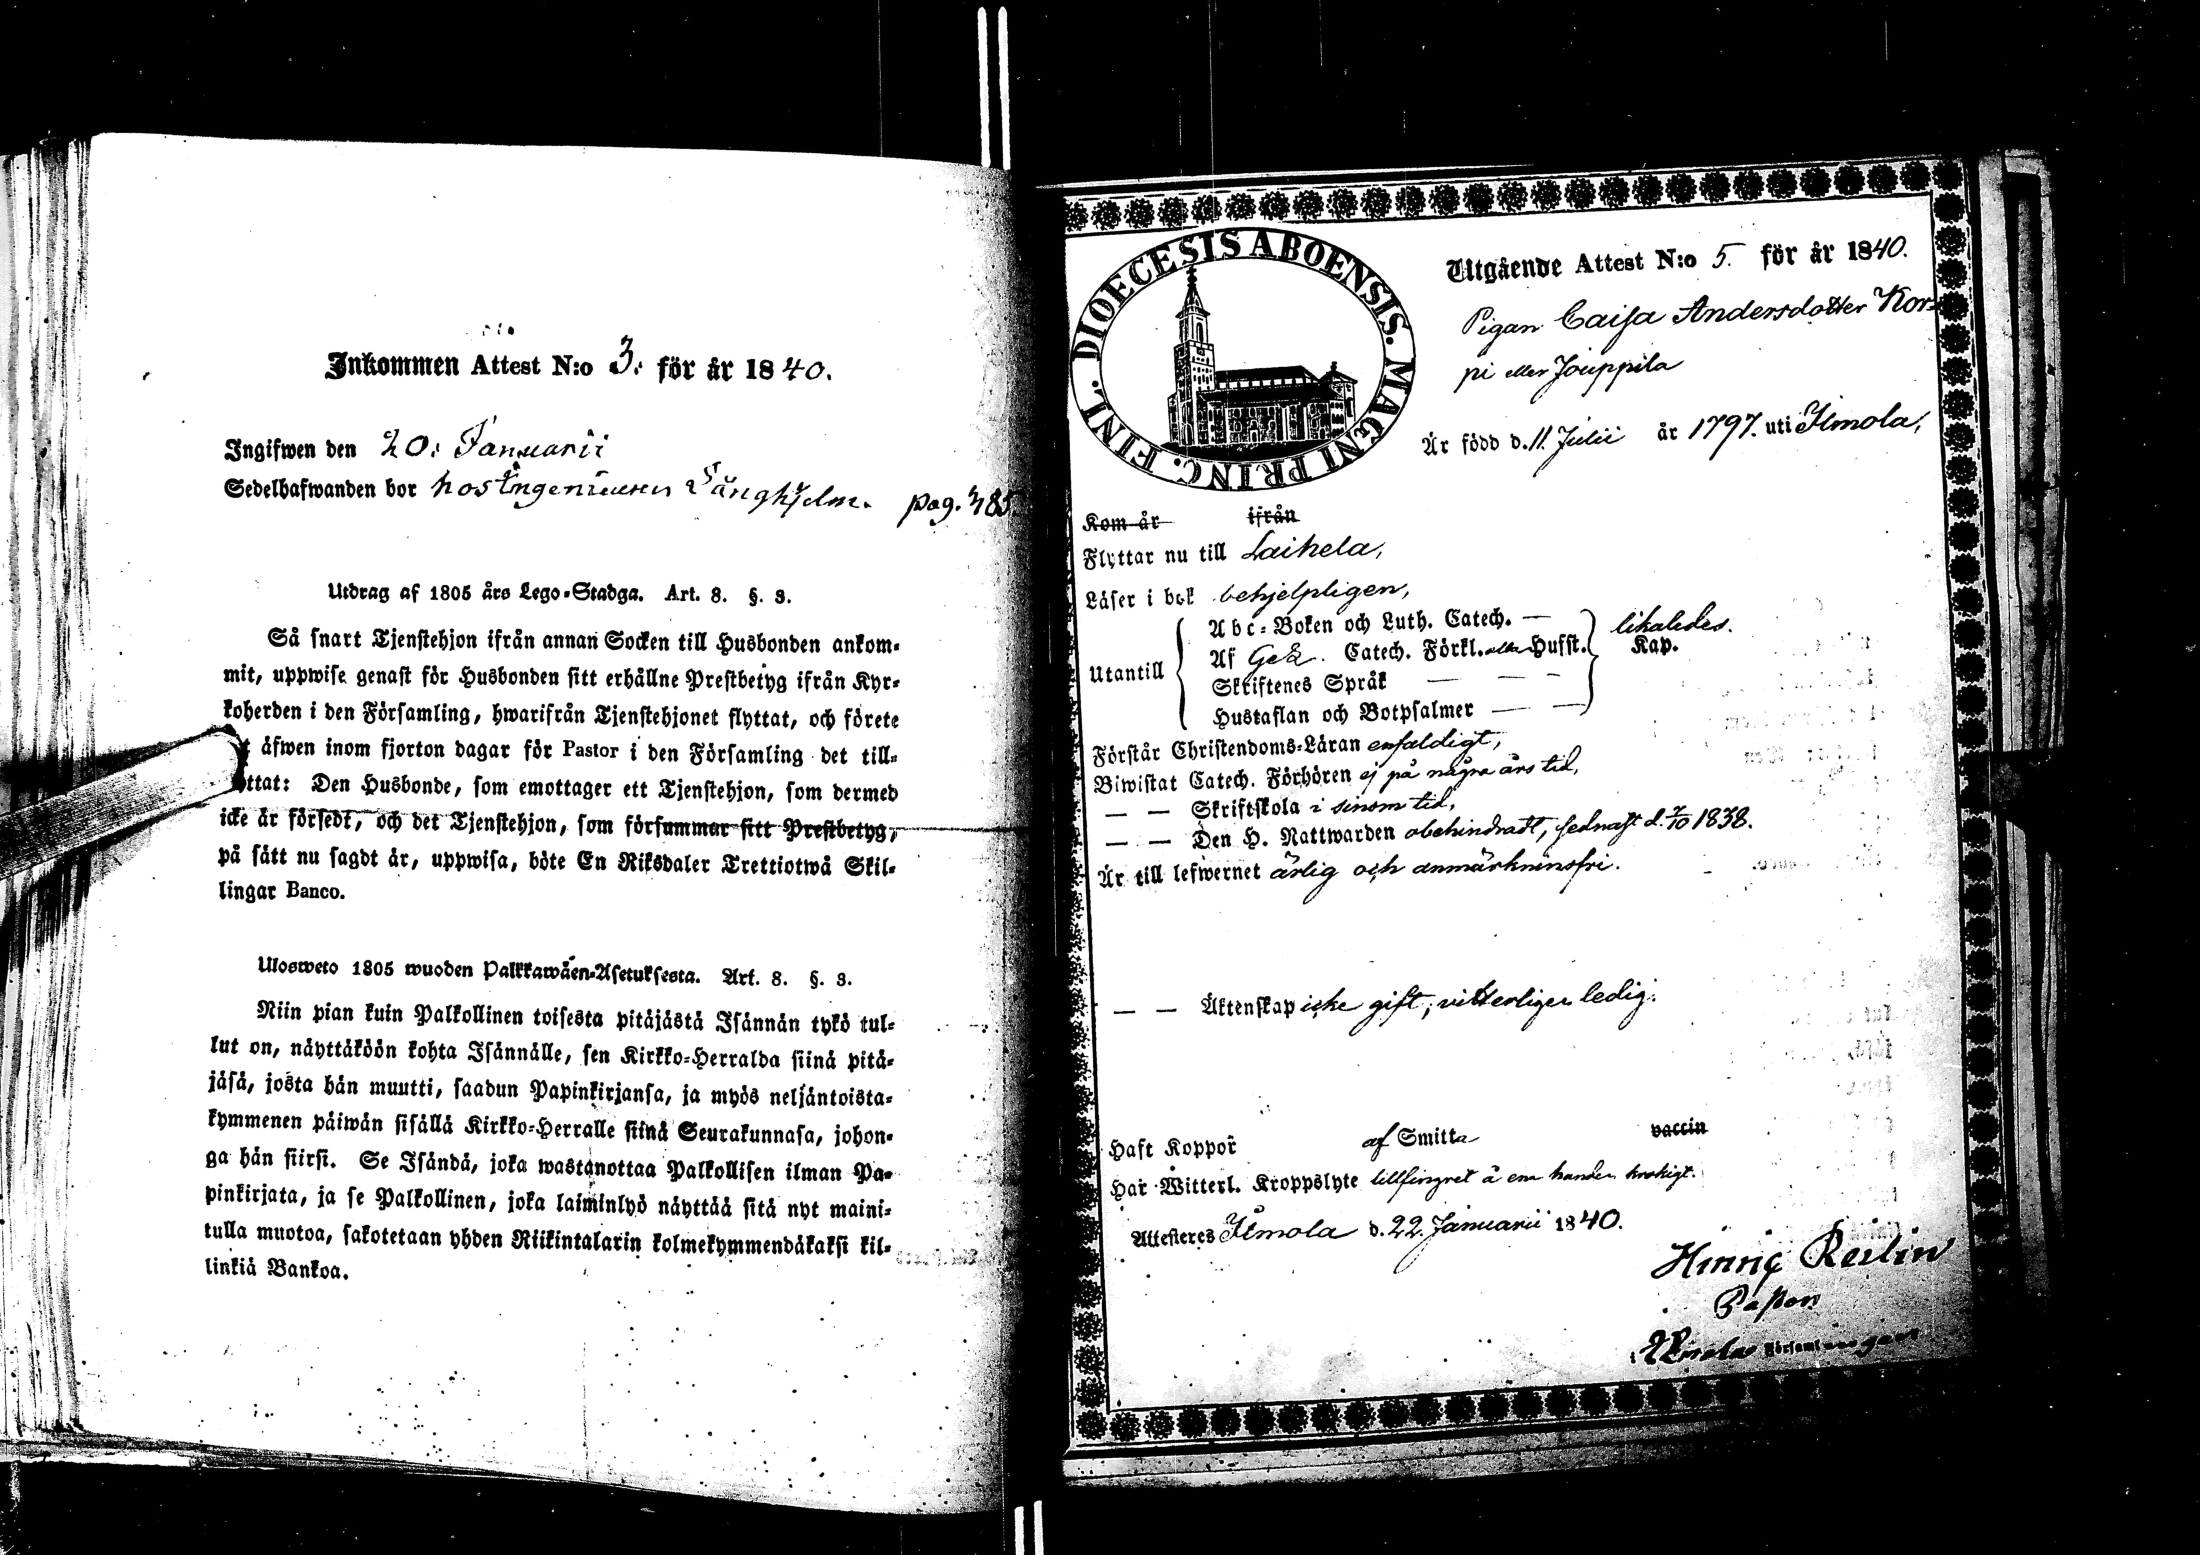 Inkommen Attest N:o 3. för år 1840.
Ingifwen den 20. Januarii
Sedelhafwanden bor hos Ingenieuren Långhjelm. pag. 485
Utdrag af 1805 års Lego-Stadga. Art. 8. §. 3.
Så snart Tjenstehjon ifrån annan Socken till Husbonden ankom-
mit, uppwise genast för Husbonden sitt erhållne Prestbetyg ifrån Kyr-
koherden i den Församling, hwarifrån Tjenstehjonet flyttat, och förete
äfwen inom fjorton dagar för Pastor i den Församling det till-
ttat: Den Husbonde, som emottager ett Tjenstehjon, som dermed
icke är försedt, och det Tjenstehjon, som försummar sitt Prestbetyg,
på sätt nu sagdt är, uppwisa, böte En Riksdaler Trettiotwå Skil-
lingar Banco.
Ulosweto 1805 wuoden Palkkawäen-Asetuksesta. Art. 8. §. 3.
Niin pian kuin Palkollinen toisesta pitäjästä Isännän tykö tul-
lut on, näyttäköön kohta Isännälle, sen Kirkko-Herralda siinä pitä-
jäsä, josta hän muutti, saadun Papinkirjansa, ja myös neljäntoista-
kymmenen päiwän sisällä Kirkko-Herralle siinä Seurakunnasa, johon-
ga hän siirsi. Se Isändä, joka wastanottaa Palkollisen ilman Pa-
pinkirjata, ja se Palkollinen, joka laiminlyö näyttää sitä nyt maini-
tulla muotoa, sakotetaan yhden Riikintalarin kolmekymmendäkaksi kil-
linkiä Bankoa.
DIOECESIS ABOENSIS. MAGNI PRINC. FINL.
Utgående Attest N:o 5. för år 1840.
Pigan Caisa Andersdotter Kor-
pi eller Jouppila
Är född d. 11. Julii år 1797. uti Ilmola,
Kom år ifrån
Flyttar nu till Laihela,
Läser i bok behjelpligen,
Utantill
Abc-Boken och Luth. Catech. —
Af Catech. Förkl. Husst.
Skriftenes Språk — — —
Hustaflan och Botpsalmer — —
likaledes.
Kap.
Förstår Christendoms-Läran enfaldigt,
Biwistat Catech. Förhören ej på några års tid,
— — Skriftskola i sinom tid,
— — Den H. Nattwarden obehindradt, sednast d. 7/10 1838.
Är till lefwernet ärlig och anmärkninsfri.
— — Äktenskap icke gift, vitterligen ledig.
Haft Koppor af Smitta vaccin
Har Witterl. Kroppslyte lillfingret å ena handen krokigt.
Attesteres Ilmola d. 22. Januarii 1840.
Hinric Reilin
Pastor
i Ilmola Församlingen